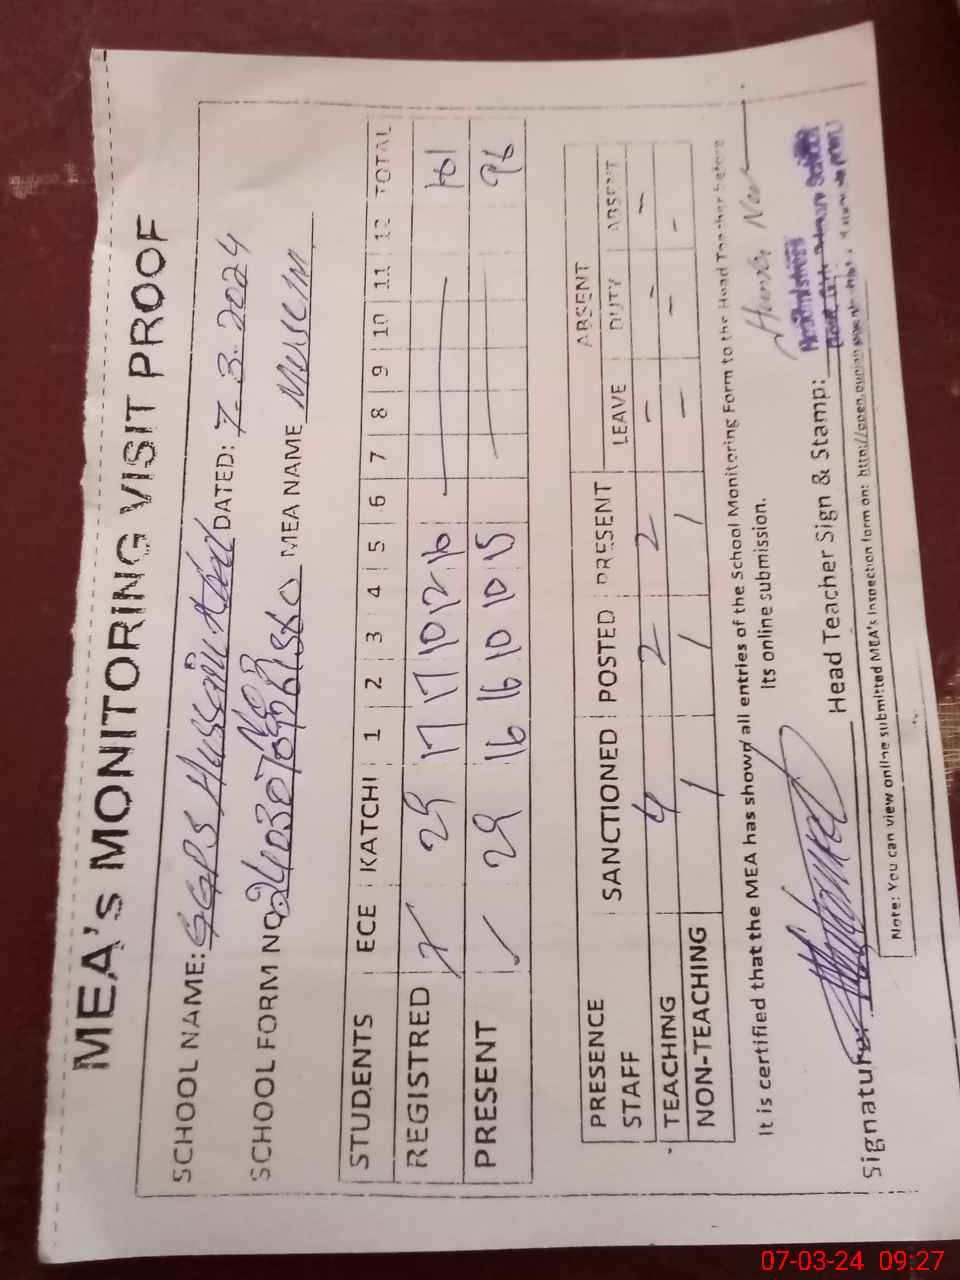 MEA's MONITORING VISIT PROOF
SCHOOL NAME: GGPS Hussain Abad DATED: 7-3-2024
SCHOOL FORM NO MEA NAME
STUDENTS ECE KATCHI 1 2 3 4 5 6 7 8 9 10 11 12 TOTAL
REGISTRED 29 17 17 10 12 16 101
PRESENT 29 16 16 10 10 15 96
PRESENCE SANCTIONED POSTED PRESENT ABSENT
STAFF LEAVE DUTY ABSENT
TEACHING 4 2 2 - - -
NON-TEACHING 1 1 1 - - -
It is certified that the MEA has shown all entries of the School Monitoring Form to the Head Teacher before
Its online submission.
Signature: Head Teacher Sign & Stamp:
Note: You can view online submitted MEA's Inspection form on:
07-03-24 09:27